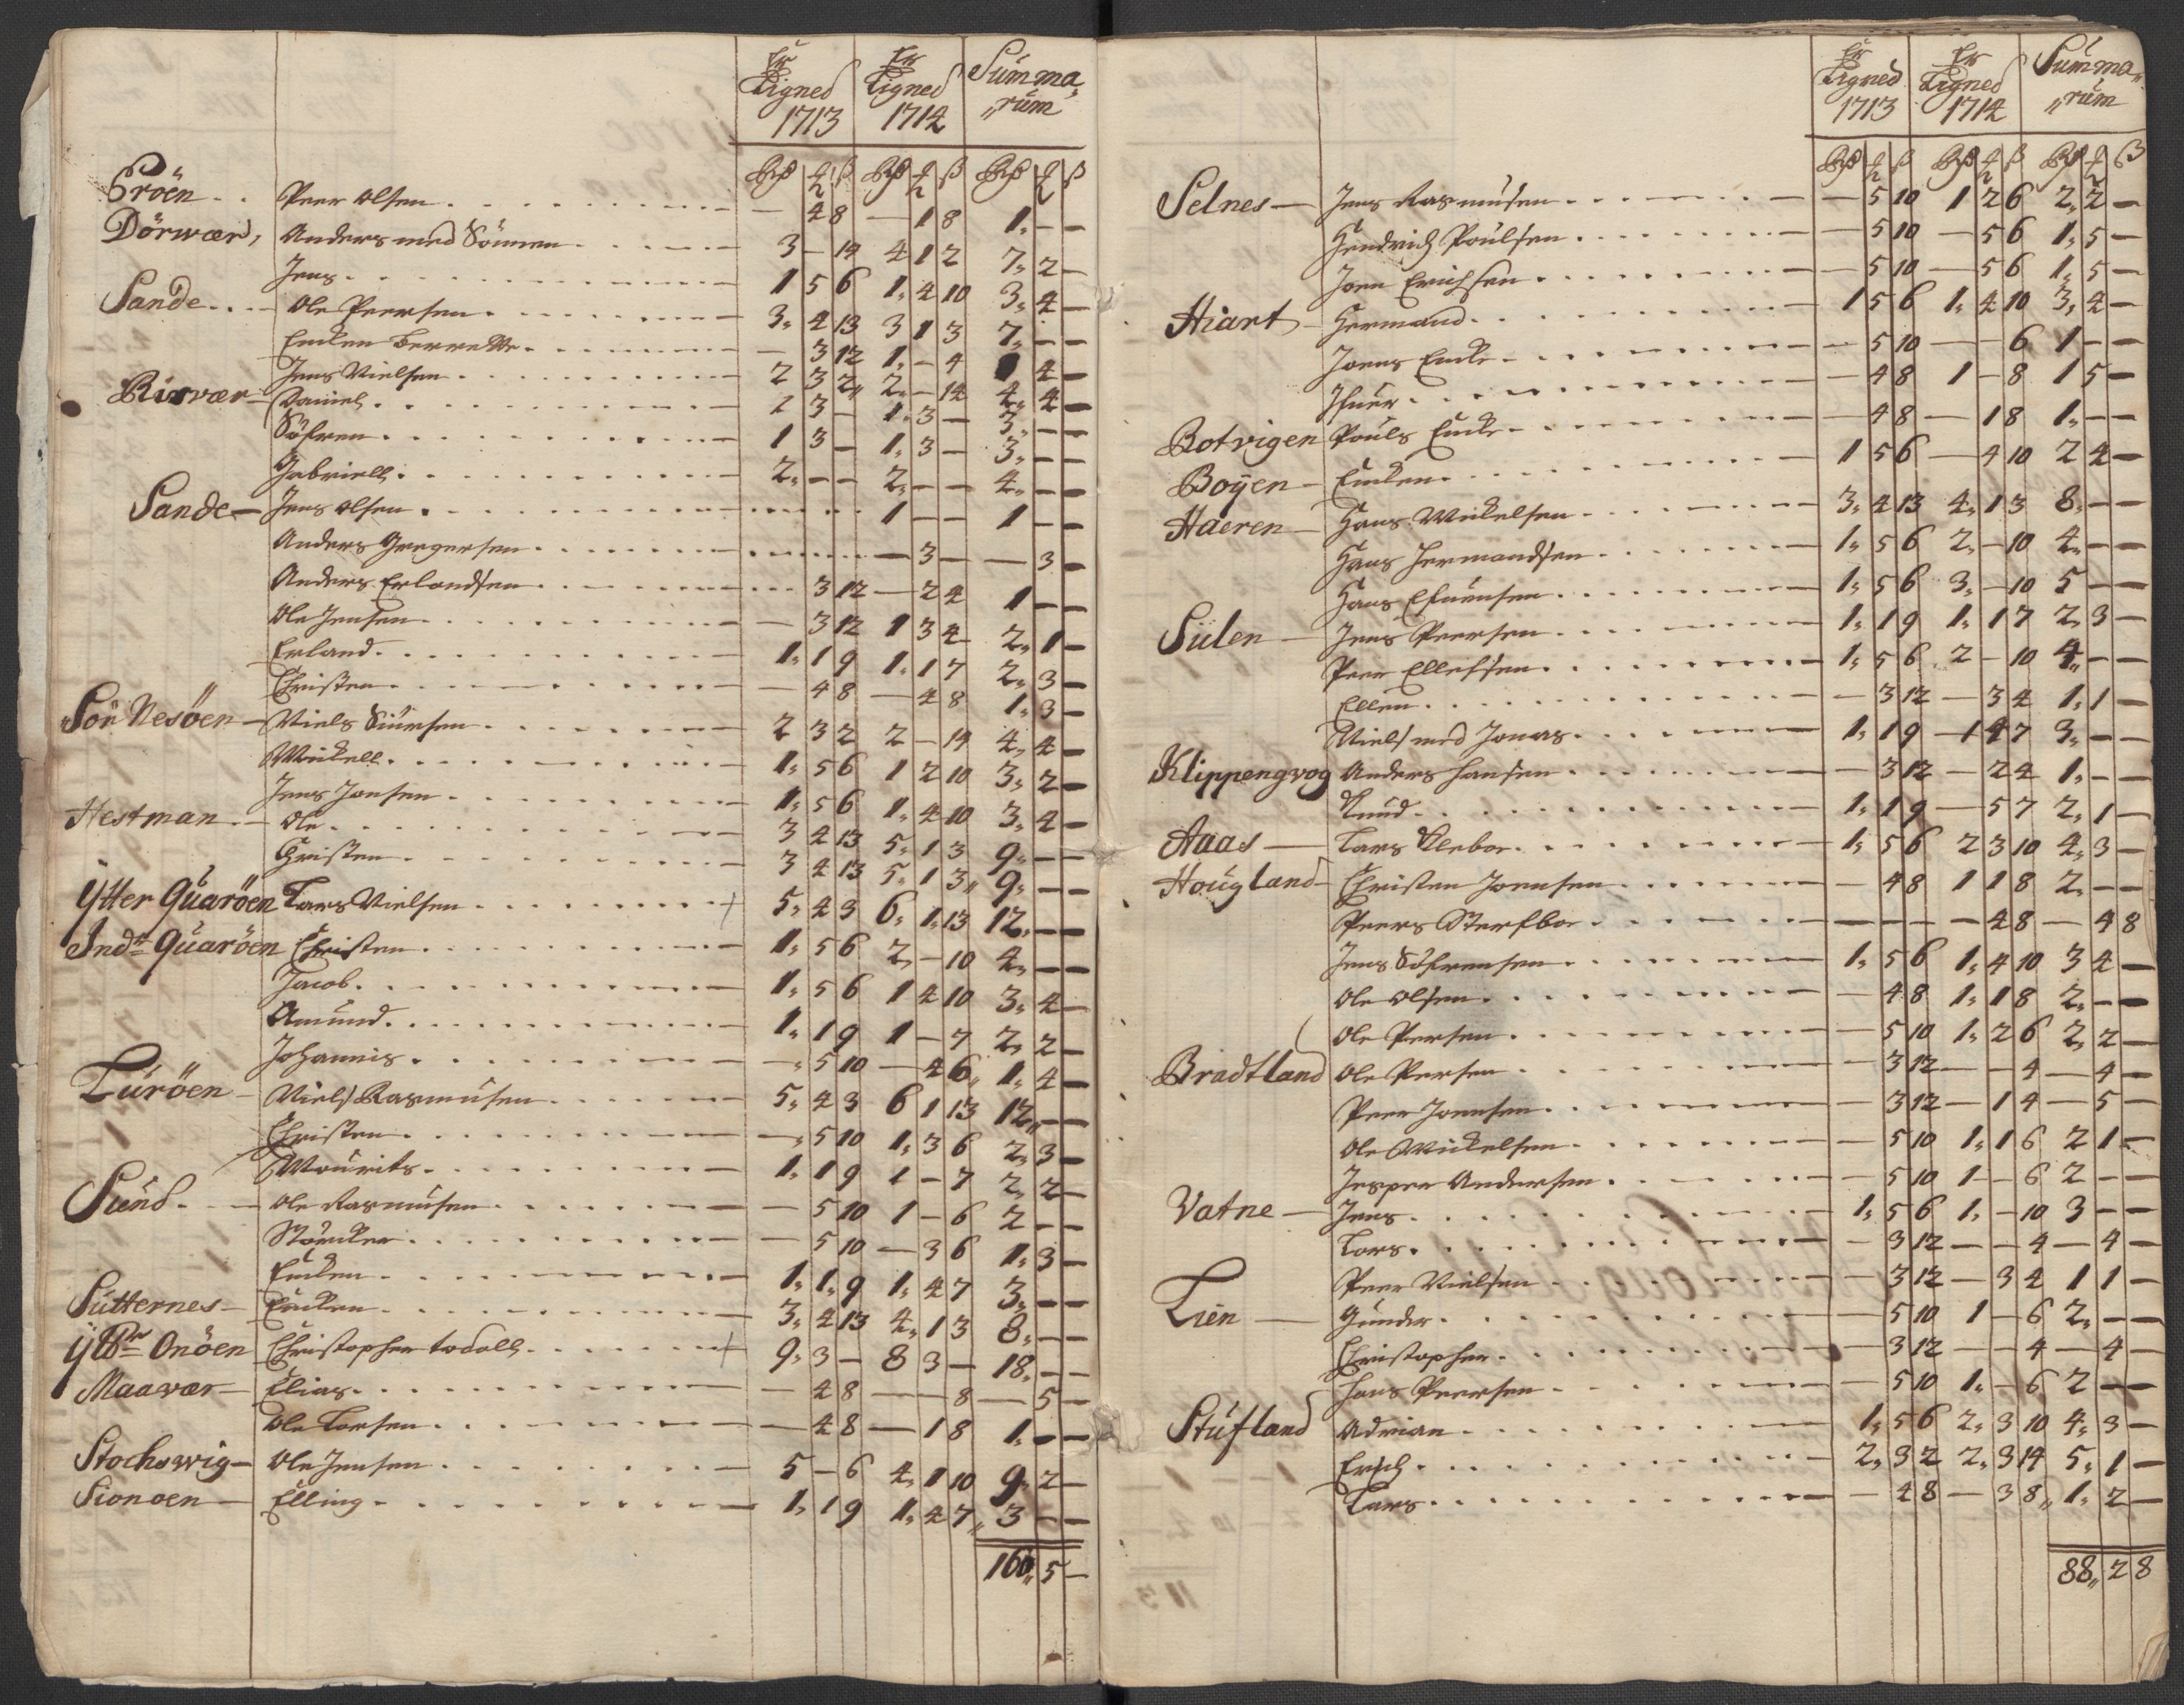 Er Ligned 1713 Er Ligned 1714 Summa„
„rum
Rd ß Rd ß Rd ß
Peer Olsen — 4 8 — 1 8 1. — —
Dörwær, Anders med Sönnen 3 — 14 4 1 2 7. 2 —
Jens 1 5 6 1. 4 10 3. 4 —
Sande Ole Peersen 3. 4 13 3 1 3 7. — —
Encken Berrette — 3 12 1. — 4 4 —
Jens Nielsen 2 3 2 2. — 14 4. 4 —
Risvær Daniel 1 3 — 1. 3 — 3. — —
Söfren 1 3 — 1. 3 — 3. — —
Gabriell 2. — — 2. — — 4. — —
Sande Jens Olsen 1 — — 1 — —
Anders Gregersen — 3 — — 3 —
Anders Erlandsen 3 12 — 2 4 1 — —
Ole Jensen — 3 12 1 3 4 2. 1 —
Erland 1. 1 9 1. 1 7 2. 3 —
Christen — 4 8 — 4 8 1. 3 —
Sör Nesöen Niels Siursen 2 3 2 2 — 14 4. 4 —
Mickell 1. 5 6 1 2 10 3. 2 —
Jens Jonsen 1. 5 6 1. 4 10 3. 4 —
Hestman Ole 3 4 13 5. 1 3 9. — —
Christen 3 4 13 5. 1 3 9. — —
Ytter Quaröen Lars Nielsen 5. 4 3 6. 1. 13 12. — —
Indr Quaröen Christen 1. 5 6 2. — 10 4. — —
Jacob 1. 5 6 1 4 10 3. 4 —
Amund 1. 1 9 1 — 7 2. 2 —
Johannis — 5 10 — 4 6 1. 4 —
Luröen Niels Rasmusen 5. 4 3 6 1 13 12. — —
Christen — 5 10 1. 3 6 2. 3 —
Mourits 1. 1 9 1 — 7 2. 2 —
Sund Ole Rasmusen — 5 10 1 — 6 2 — —
Störcker — 5 10 — 3 6 1. 3 —
Encken 1. 1. 9 1. 4 7 3. — —
Sutternes Encken 3. 4 13 4. 1 3 8. — —
Onöen Christopher 9. 3 — 8 3 — 18. — —
Maavær Elias — 4 8 — — 8 — 5 —
Ole Larsen — 4 8 — 1 8 1. — —
Stochswig Ole Jensen 5 — 6 4. 1 10 9. 2 —
Sionoen Elling 1. 1 9 1. 4 7 3 — —
160„ 5 —
Er Ligned 1713 Er Ligned 1714 Summa„
„rum
Rd ß Rd ß Rd ß
Selnes Jens Rasmusen — 5 10 1 2 6 2. 2 —
Hendrich Poulsen — 5 10 — 5 6 1. 5 —
Joen Erichsen — 5 10 — 5 6 1. 5 —
Hiart Hermand 1 5 6 1. 4 10 3. 4 —
Joens Encke — 5 10 — — 6 1 — —
Ifuer — 4 8 1 — 8 1 5 —
Botvigen Pouls Encke — 4 8 — 1 8 1. — —
Boyen Encken 1 5 6 — 4 10 2 4 —
Haeren Hans Mickelsen 3. 4 13 4. 1 3 8. — —
Hans Hermandsen 1. 5 6 2. — 10 4. — —
Hans 1. 5 6 3. — 10 5 — —
Sulen Jens Peersen 1. 1 9 1. 1 7 2. 3 —
Peer Ellefsen 1. 5 6 2 — 10 4. — —
Ellen — 3 12 — 3 4 1. 1 —
Niels med Jonas 1. 1 9 — 1 4 7 3. — —
Klippengvog Anders Hansen — 3 12 — 2 4 1. — —
Knud 1. 1 9 — 5 7 2. 1 —
Aaas Lars Klebor 1. 5 6 2 3 10 4. 3 —
Hougland Christen Joensen — 4 8 1 1 8 2. — —
Peers Sterfboe — — — — 4 8 — 4 8
Jens Söfrensen 1. 5 6 1. 4 10 3 4 —
Ole Olsen — 4 8 1. 1 8 2. — —
Ole Persen — 5 10 1. 2 6 2. 2 —
Bradtland Ole Persen — 3 12 — — 4 — 4 —
Peer Joensen — 3 12 — 1 4 — 5 —
Ole Mickelsen — 5 10 1. 1 6 2 1 —
Jesper Andersen — 5 10 1 — 6 2 — —
Vatne Jens 1. 5 6 1. — 10 3 — —
Lars — 3 12 — — 4 — 4 —
Peer Nielsen — 3 12 — 3 4 1 1 —
Lien Gunder — 5 10 1 — 6 2. — —
Christopher — 3 12 — — 4 — 4 —
Hans Peersen — 5 10 1. — 6 2 — —
Stufland Adrian 1. 5 6 2. 3 10 4. 3 —
Erich 2. 3 2 2. 3 14 5. 1 —
Lars — 4 8 — 3 8 1. 2 —
88„ 2 8